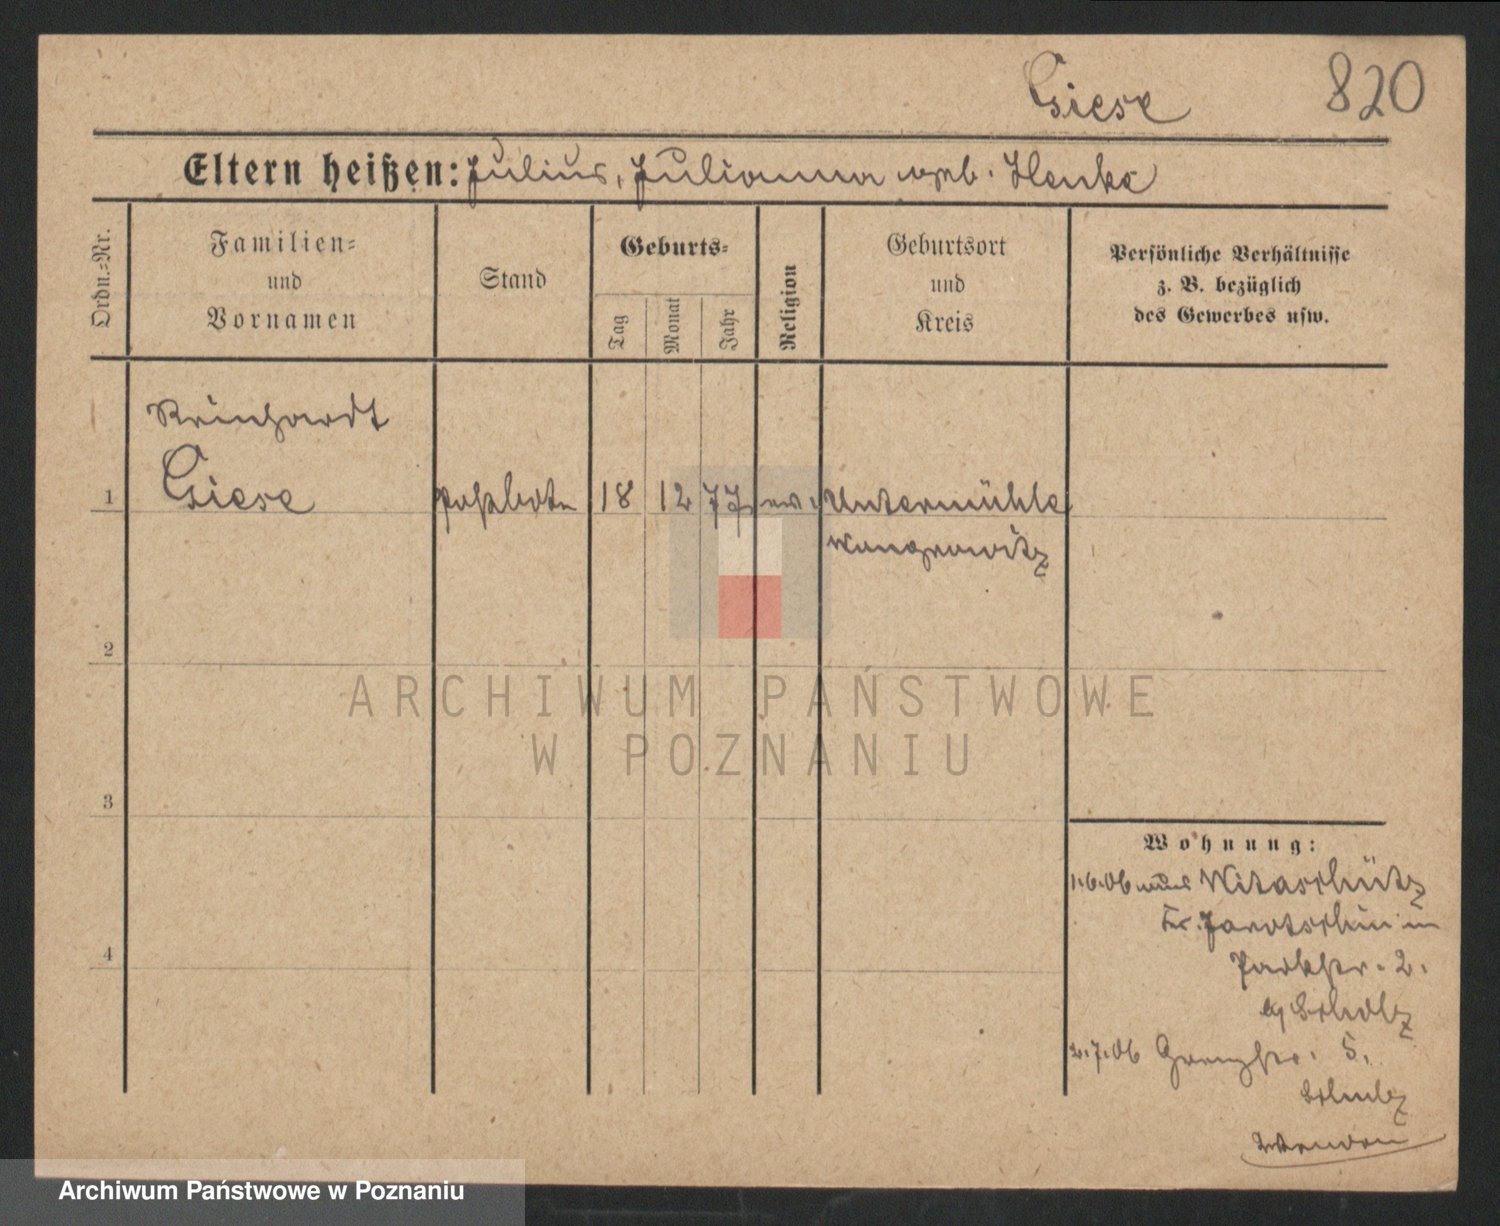 Giese 820
Eltern heißen: Julius, Julianna geb. Henke
Ordn.=Nr.
Familien=
und
Vornamen
Stand
Geburts=
Tag
Monat
Jahr
Religion
Geburtsort
und
Kreis
Persönliche Verhältnisse
z. B. bezüglich
des Gewerbes usw.
Reinhardt
1 Giese Postbote 18 12 77 ev. Untermühle
Wongrowitz
2
3
4
ARCHIWUM PAŃSTWOWE
W POZNANIU
Wohnung:
1.6.06 aus Witaschütz
Kr. Jarotschin in
Parkstr. 2.
Scholz
2.7.06 Grenzstr. 5.
Schulz
Archiwum Państwowe w Poznaniu